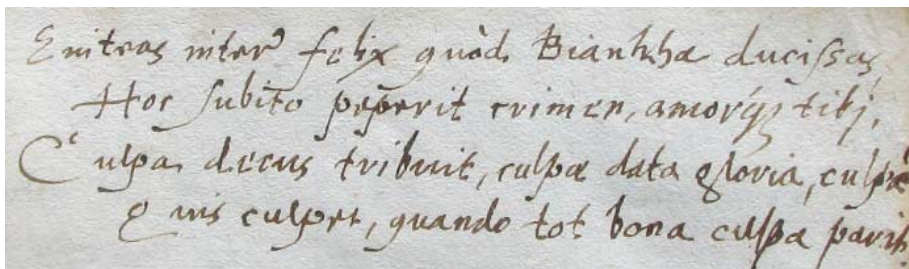 Eniteas inter felix quòd Biankhæ ducissas,
Hoc subito peperit crimen, amorq́ꝫ tibj,
Culpa decus tribuit, culpæ data gloria, culpæ
Quis culpet, quando tot bona culpa parit.